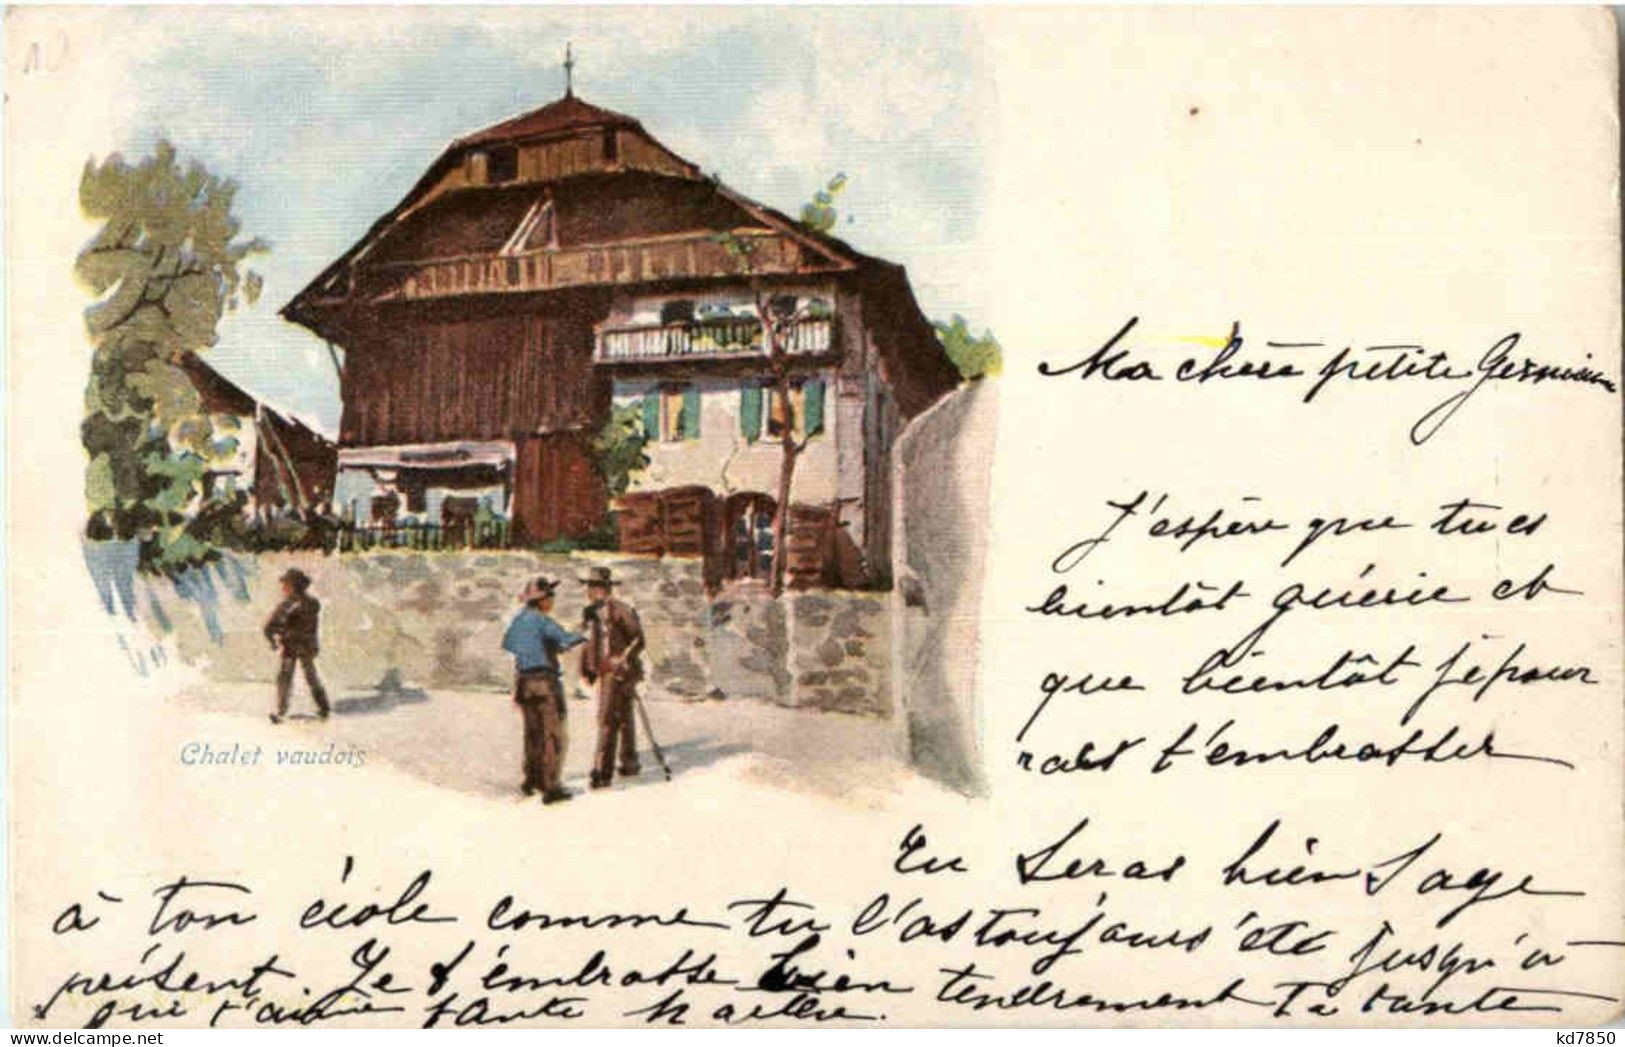 Chalet vaudois
Ma chère petite Germaine
J'espère que tu es
bientôt guérie et
que bientôt je pour
rais t'embrasser
Tu seras bien sage
à ton école comme tu l'as toujours été jusqu'à
présent. Je t'embrasse bien tendrement Ta tante
qui t'aime tante
kd7850